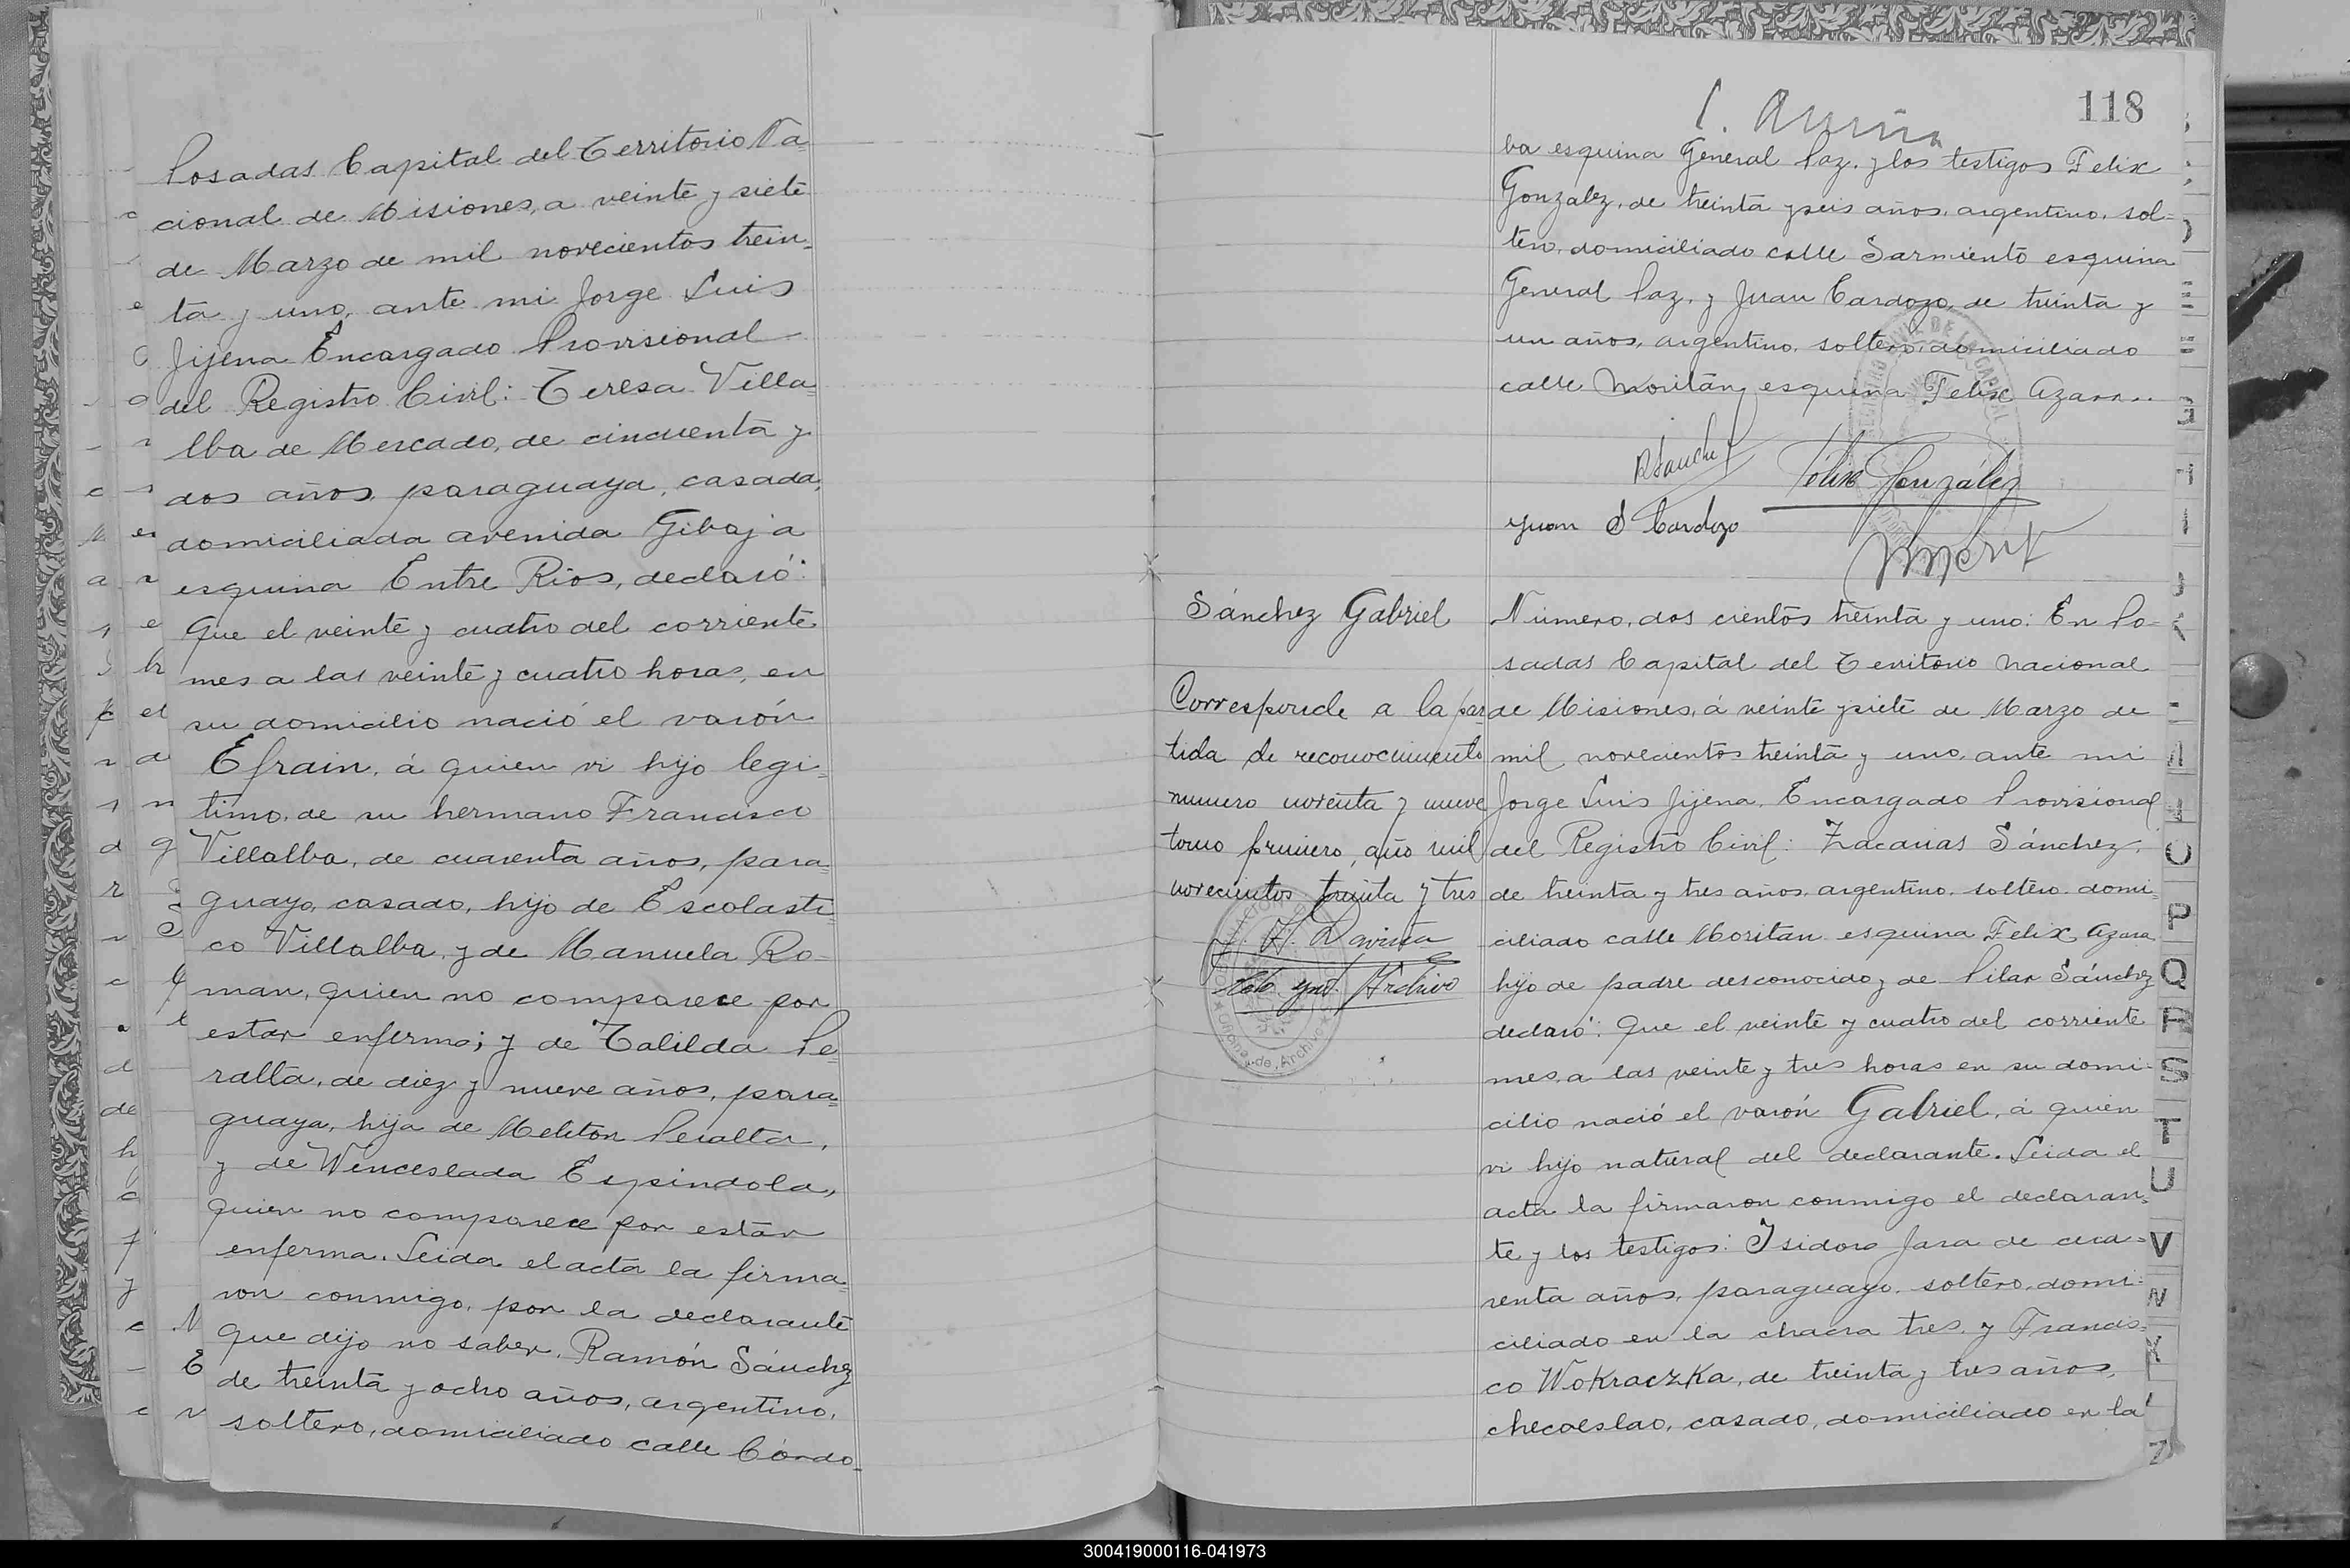 Posadas Capital del Territorio Na-
cional de Misiones, a veinte y siete
de Marzo de mil novecientos trein-
ta y uno, ante mi Jorge Luis
Jijena Encargado Provisional
del Registro Civil: Teresa Villa-
lba de Mercado, de cincuenta y
dos años, paraguaya, casada,
domiciliada avenida Gibaja
esquina Entre Rios, declaró:
Que el veinte y cuatro del corriente
mes a las veinte y cuatro horas, en
su domicilio nació el varón
Efrain, á quien vi hijo legi-
timo, de su hermano Francisco
Villalba, de cuarenta años, para-
guayo, casado, hijo de Escolasti-
co Villalba y de Manuela Ro-
man, quien no comparece por
estar enfermo; y de Talilda Pe-
ralta, de diez y nueve años, para-
guaya, hija de Meliton Peralta,
y de Wenceslada Espindola,
quien no comparece por estar
enferma. Leida el acta la firma-
ron conmigo, por la declarante
que dijo no saber, Ramón Sánchez
de treinta y ocho años, argentino,
soltero, domiciliado calle Córdo-
118
ba esquina General Paz, y los testigos Felix
Gonzalez, de treinta y seis años, argentino, sol-
tero, domiciliado calle Sarmiento esquina
General Paz, y Juan Cardozo, de treinta y
un años, argentino, soltero, domiciliado
calle Moritán esquina Felix Azara..
RSanchez
Félix González
Juan S Cardozo
Sánchez Gabriel
Corresponde a la par
tida de reconocimiento
numero noventa y nueve
tomo primero, año mil
novecientos treinta y tres
Archivo
Número, dos cientos treinta y uno: En Po-
sadas Capital del Territorio Nacional
de Misiones, á veinte y siete de Marzo de
mil novecientos treinta y uno, ante mi
Jorge Luis Jijena, Encargado Provisional
del Registro Civil: Zacarias Sánchez,
de treinta y tres años, argentino, soltero, domi-
ciliado calle Moritan esquina Felix Azara
hijo de padre desconocido y de Pilar Sánchez
declaró: Que el veinte y cuatro del corriente
mes, a las veinte y tres horas en su domi-
cilio nació el varón Gabriel, á quien
vi hijo natural del declarante. Leida el
acta la firmaron conmigo el declaran-
te y los testigos: Isidoro Jara de cua-
renta años, paraguayo, soltero, domi-
ciliado en la chacra tres, y Francis-
co Wokraczka, de treinta y tres años,
checoeslao, casado, domiciliado en la
O
P
Q
R
S
T
U
V
300419000116-041973